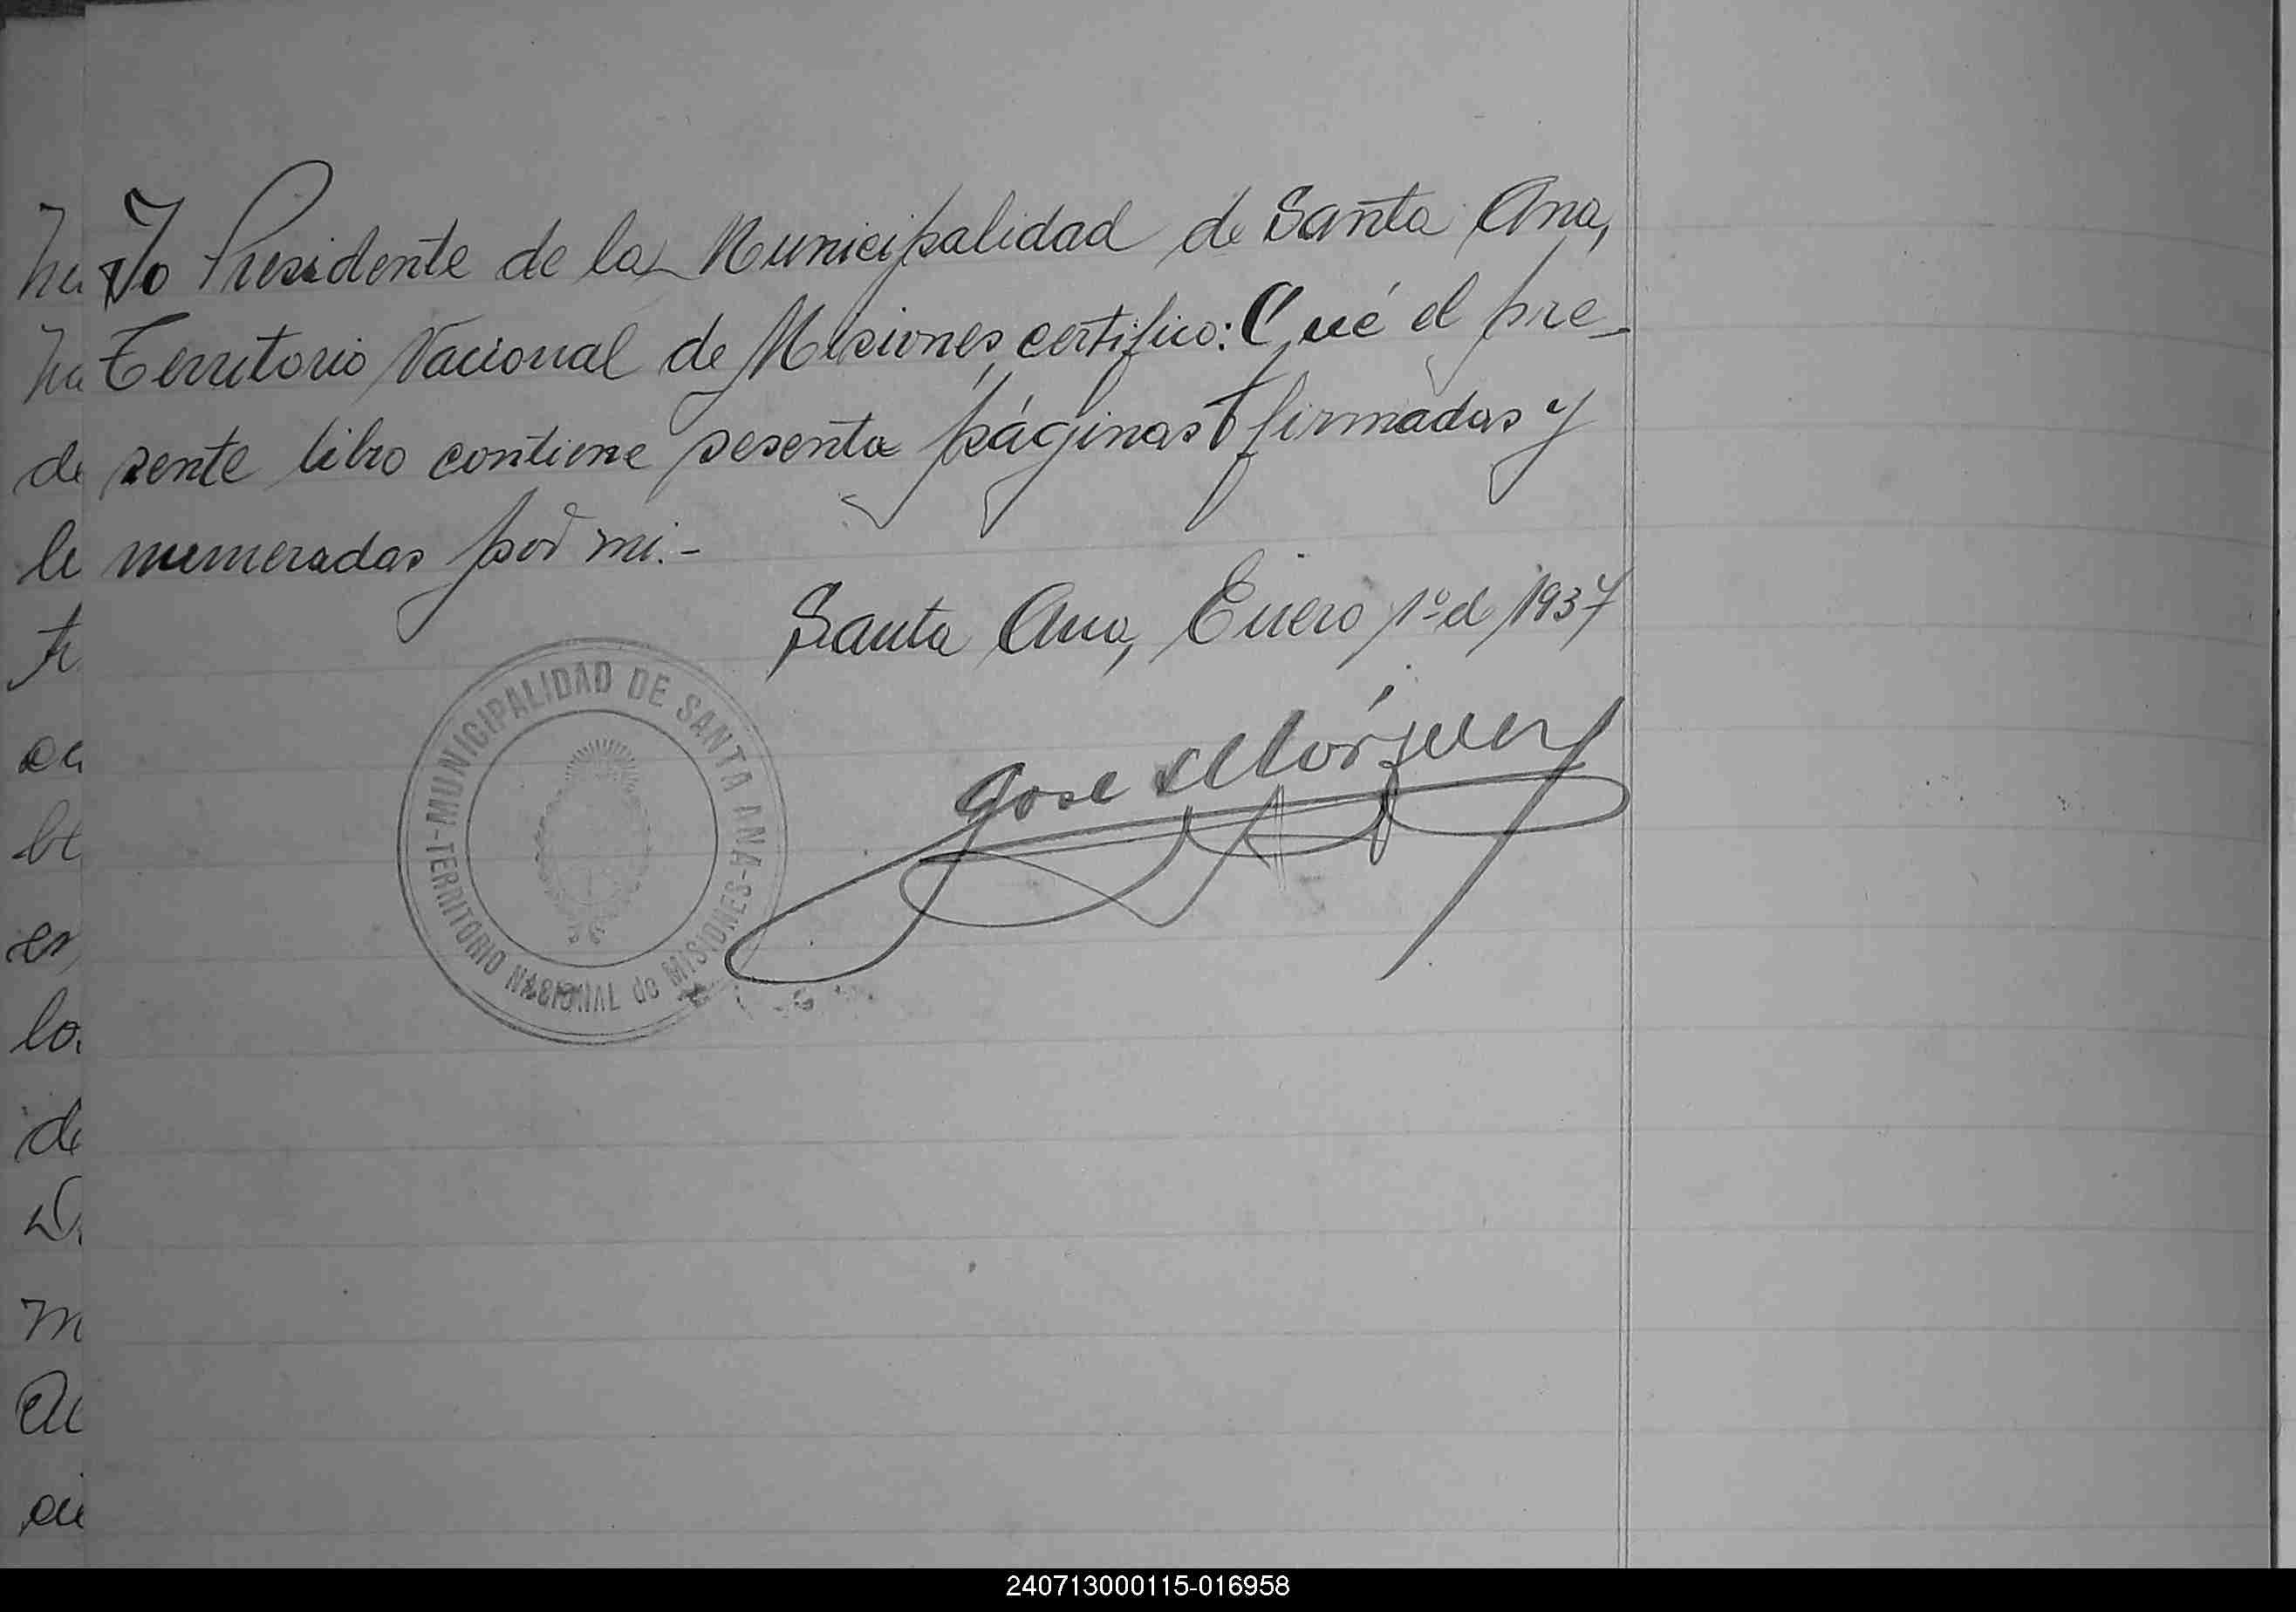 Yo Presidente de la Municipalidad de Santa Ana,
Territorio Nacional de Misiones, certifico: Qué el pre-
sente libro contiene sesenta páginas firmadas y
numeradas por mi.-
Santa Ana, Enero 1º d 1937
José Márquez
MUNICIPALIDAD DE SANTA ANA-
TERRITORIO NACIONAL de MISIONES-
ha
ha
de
le
tr
se
bt
es
lo
de
D.
m
Au
cie
240713000115-016958